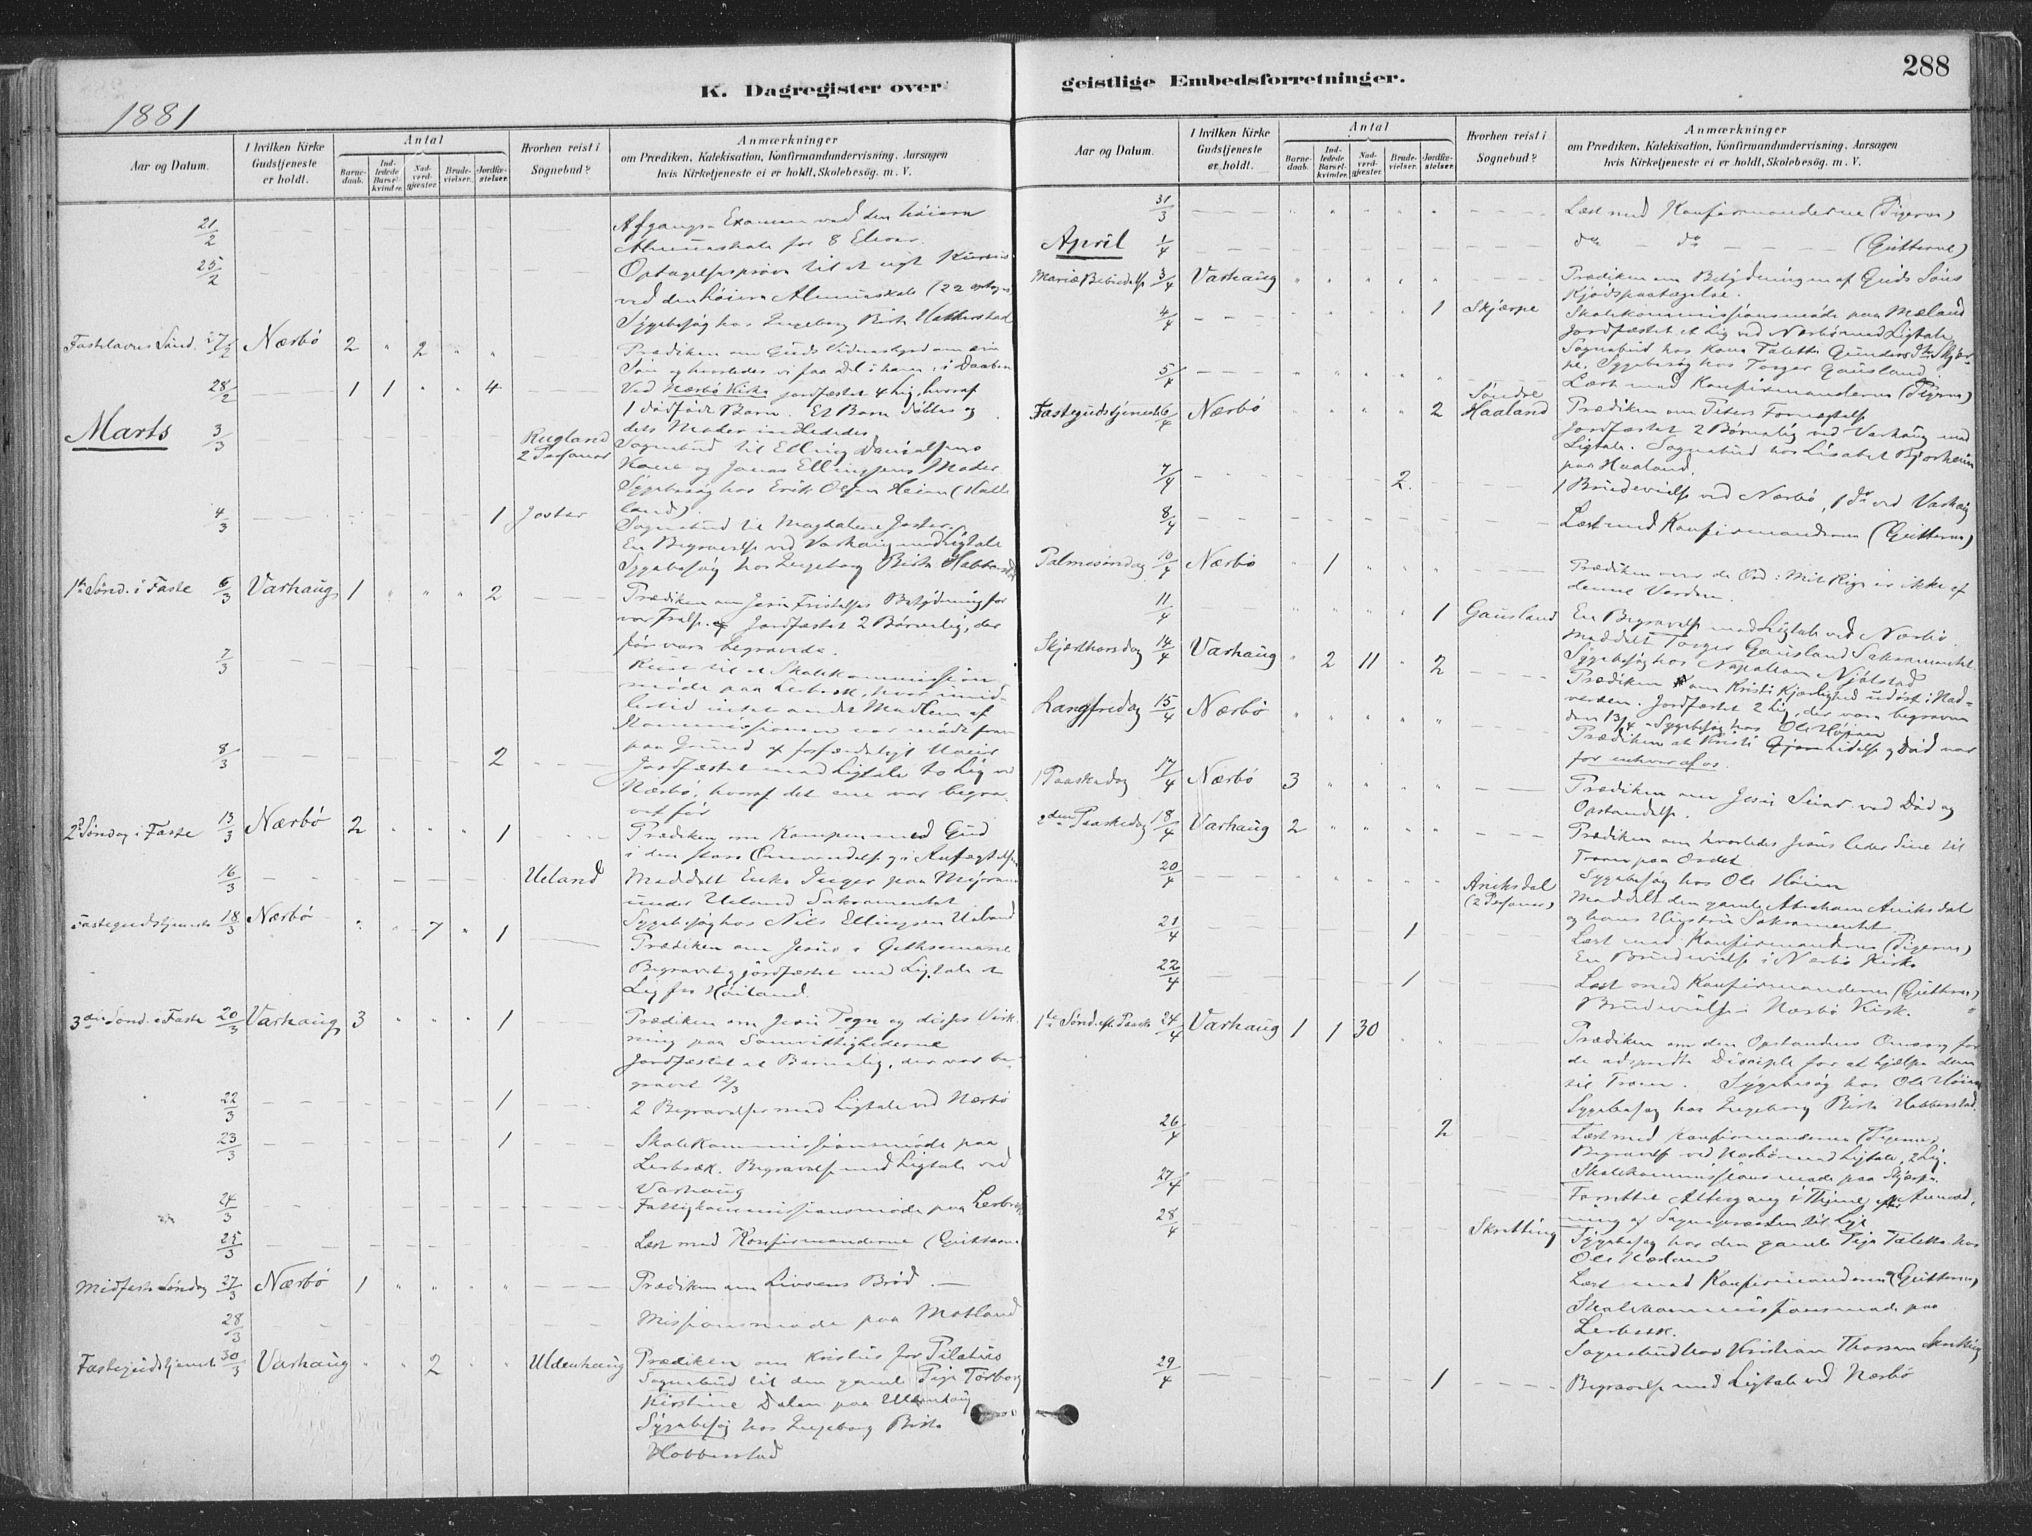 288
K. Dagregister over
geistlige Embedsforretninger.
1881
Aar og Datum.
I hvilken Kirke
Gudstjeneste
er holdt.
Antal
Barne-
daab.
Ind-
ledede
Barsel-
kvinder.
Nad-
verd-
gjæster.
Brude-
vielser.
Jordfæ-
stelser.
Hvorhen reist i
Sognebud?
Anmærkninger
om Prædiken, Katekisation, Konfirmandundervisning, Aarsagen
hvis Kirketjeneste ei er holdt, Skolebesøg. m. V.
21/2
Afgangs-Examen ved den høiere
Almueskole for 8 Elever.
25/2
Optagelsesprøve til et nyt Kursus
ved den høiere Almueskole (22
Sygebesøg hos Ingeborg Birte
Fastelavns Sønd. 27/2 Nærbø 2 " 2 " "
Prædiken om Guds Vidnesbyrd om sin
Søn og hvorledes vi faa Del i ham: i Daaben
28/2 1 1 " " 4
Ved Nærbø Kirke jordfæstet 4 Lig, hvoraf
1 dødfødt Barn. Et Barn døbtes og
dets Moder indlededes
Marts 3/3 Rugland
2 Personer
Sognebud til Elling Danielsens
Kone og Jonas Ellingsens Moder
Sygebesøg hos Erik Olsen
4/3 1 Joster
Sognebud til Magdalene Joster.
En Begravelse ved Varhaug med Ligtale
Sygebesøg hos Ingeborg Birte
1ste Sønd. i Faste 6/3 Varhaug 1 " " " 2
Prædiken om Jesu Fristelses Betydning for
vor Frelse. Jordfæstet 2 Børnelig, der
før vare begravede.
7/3
Reist til et Skolekommissions
møde paa Lerbræk, hvor imid-
lertid intet andet Medlem af
Kommissionen var mødt frem
paa Grund af forfærdeligt Uveir
8/3 2
Jordfæstet med Ligtale to Lig ved
Nærbø, hvoraf det ene var begra-
vet før
2den Søndag i Faste 13/3 Nærbø 2 " " " 1
Prædiken om Kampen med Gud
i den store Omvendelse og i Anfægtelser
16/3 Ueland
Meddelt Enke Inger paa Myrene
under Ueland Sakramentet
Fastegudstjeneste 18/3 Nærbø " " 7 " 1
Sygebesøg hos Nils Ellingsen Ueland
Prædiken om Jesus i Gethsemane
Begravet og jordfæstet med Ligtale et
Lig fra Høiland.
3die Sønd. i Faste 20/3 Varhaug 3 " " " 1
Prædiken om Jesu Tegn og disses Virk-
ning paa Samvittighederne
Jordfæstet et Barnelig, der var be-
gravet 12/3
22/3 1
2 Begravelser med Ligtale ved Nærbø
23/3 1
Skolekommissionsmøde paa
Lerbræk. Begravelse med Ligtale ved
Varhaug
24/3
Fattigkommissionsmøde paa Lerbræk
25/3
Læst med Konfirmanderne (Gutterne
Midfaste Søndag 27/3 Nærbø 1 " " " "
Prædiken om Livsens Brød.
28/3
Missionsmøde paa Motland
Fastegudstjeneste 30/3 Varhaug " " 2 " " Uldenhaug
Prædiken om Kristus for Pilatus
Sognebud til den gamle Pige Torborg
Kirstine Dalen paa Uldenhaug
Sygebesøg hos Ingeborg Birte
Hobberstad
Aar og Datum.
I hvilken Kirke
Gudstjeneste
er holdt.
Antal
Barne-
daab.
Ind-
ledede
Barsel-
kvinder.
Nad-
verd-
gjæster.
Brude-
vielser.
Jordfæ-
stelser.
Hvorhen reist i
Sognebud?
Anmærkninger
om Prædiken, Katekisation, Konfirmandundervisning, Aarsagen
hvis Kirketjeneste ei er holdt, Skolebesøg. m. V.
31/3
Læst med Konfirmanderne (Pigerne)
April 1/4
do do (Gutterne)
Mariæ Bebudelse 3/4 Varhaug " " " " "
Prædiken om Betydningen af Guds Søns
Kjødspaatagelse.
4/4 1 Skjærpe
Skolekommissionsmøde paa Mæland
Jordfæstet et Lig ved Nærbø med Ligtale
Sognebud hos Kone Taletta Gunders Dtr Skjær-
pe. Sygebesøg hos Torger Gausland
5/4
Læst med Konfirmanderne (Pigerne)
Fastegudstjeneste 6/4 Nærbø " " " " 2 Søndre
Haaland
Prædiken om Peters Fornegtelse
Jordfæstet 2 Børnelig ved Varhaug med
Ligtale. Sognebud hos Lisabet
paa Haaland.
7/4 2
1 Brudevielse ved Nærbø, 1 do ved Varhaug
8/4
Læst med Konfirmanderne (Gutterne)
Palmesøndag 10/4 Nærbø " 1 " " "
Prædiken over de Ord: Mit Rige er ikke af
denne Verden.
11/4 1 Gausland
En Begravelse med Ligtale ved Nærbø
Meddelt Torger Gausland Sakramentet
Skjærthorsdag 14/4 Varhaug " 2 11 " 2
Sygebesøg hos Napoleon Njølstad
Prædiken om Kristi Kjærlighed udøst i Nad-
verden. Jordfæstet 2 Lig, der vare begravne
den 13/4. Sygebesøg hos Ole Høien
Langfredag 15/4 Nærbø " " " " "
Prædiken at Kristi Lidelse og Død var
for enhver af os.
1 Paaskedag 17/4 Nærbø 3 " " " "
Prædiken om Jesu Seier ved Død og
Opstandelse.
2den Paaskedag 18/4 Varhaug 2 " " " "
Prædiken om hvorledes Jesus leder sine til
Troen paa Ordet
20/4 Aniksdal
(2 Personer)
Sygebesøg hos Ole Høien
Meddelt den gamle Abraham Aniksdal
og hans Hustru Sakramentet.
21/4 1
Læst med Konfirmanderne (Pigerne)
En Brudevielse i Nærbø Kirke
22/4 1
Læst med Konfirmanderne (Gutterne)
Brudevielse i Nærbø Kirke.
1ste Sønd. eft. Paaske 24/4 Varhaug 1 1 30 " "
Prædiken om den Opstandnes Omsorg for
de adspredte Disciple for at hjælpe dem
til Troen. Sygebesøg hos Ole Høien
Sygebesøg hos Ingeborg Birte Hobberstad.
26/4 2
Læst med Konfirmanderne (Pigerne)
Begravelse ved Nærbø med Ligtale, 2 Lig.
27/4
Skolekommissionsmøde paa Skjærpe
28/4 Skretting
Forrettet Altergang i Thime efter Anmod-
ning af Sognepræsten til Lye
Sygebesøg hos den gamle Pige Taletta hos
Ole
Læst med Konfirmanderne (Gutterne)
Skolekommissionsmøde paa
Lerbræk.
Sognebud hos Kristian Thorsen Skretting
29/4 1
Begravelse med Ligtale ved Nærbø